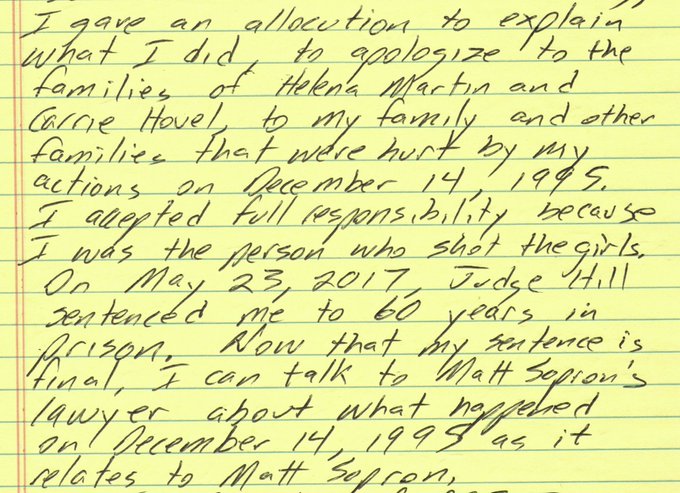 I gave an allocution to explain
what I did, to apologize to the
families of Helena Martin and
Carrie Hovel, to my family and other
families that were hurt by my
actions on December 14, 1995.
I accepted full responsibility because
I was the person who shot the girls.
On May 23, 2017, Judge Hill
sentenced me to 60 years in
prison. Now that my sentence is
final, I can talk to Matt Sopron's
lawyer about what happened
on December 14, 1995 as it
relates to Matt Sopron.